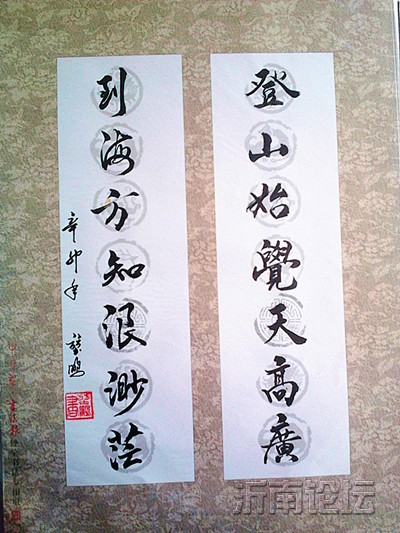 登山始覺天高廣
到海方知浪渺茫
辛卯年
沂南论坛